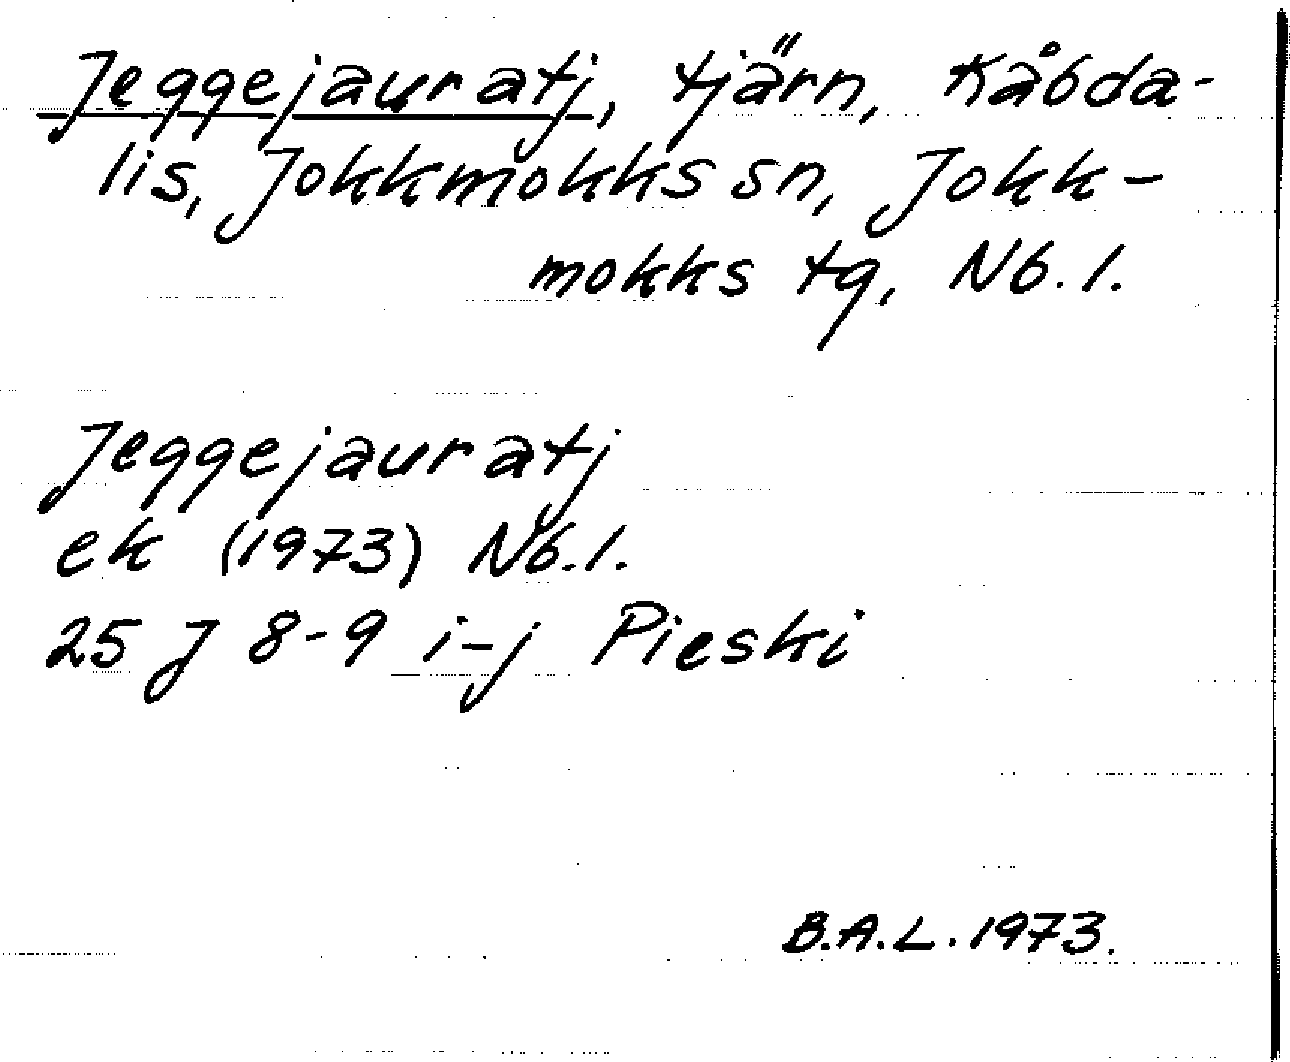 Jeggejauratj, tjärn, Kåbda-
lis, Jokkmokks sn, Jokk-
mokks tg, Nb. l.
Jeggejauratj
ek (1973) Nb. l.
25 J 8-9 i-j Pieski
B.A.L. 1973.